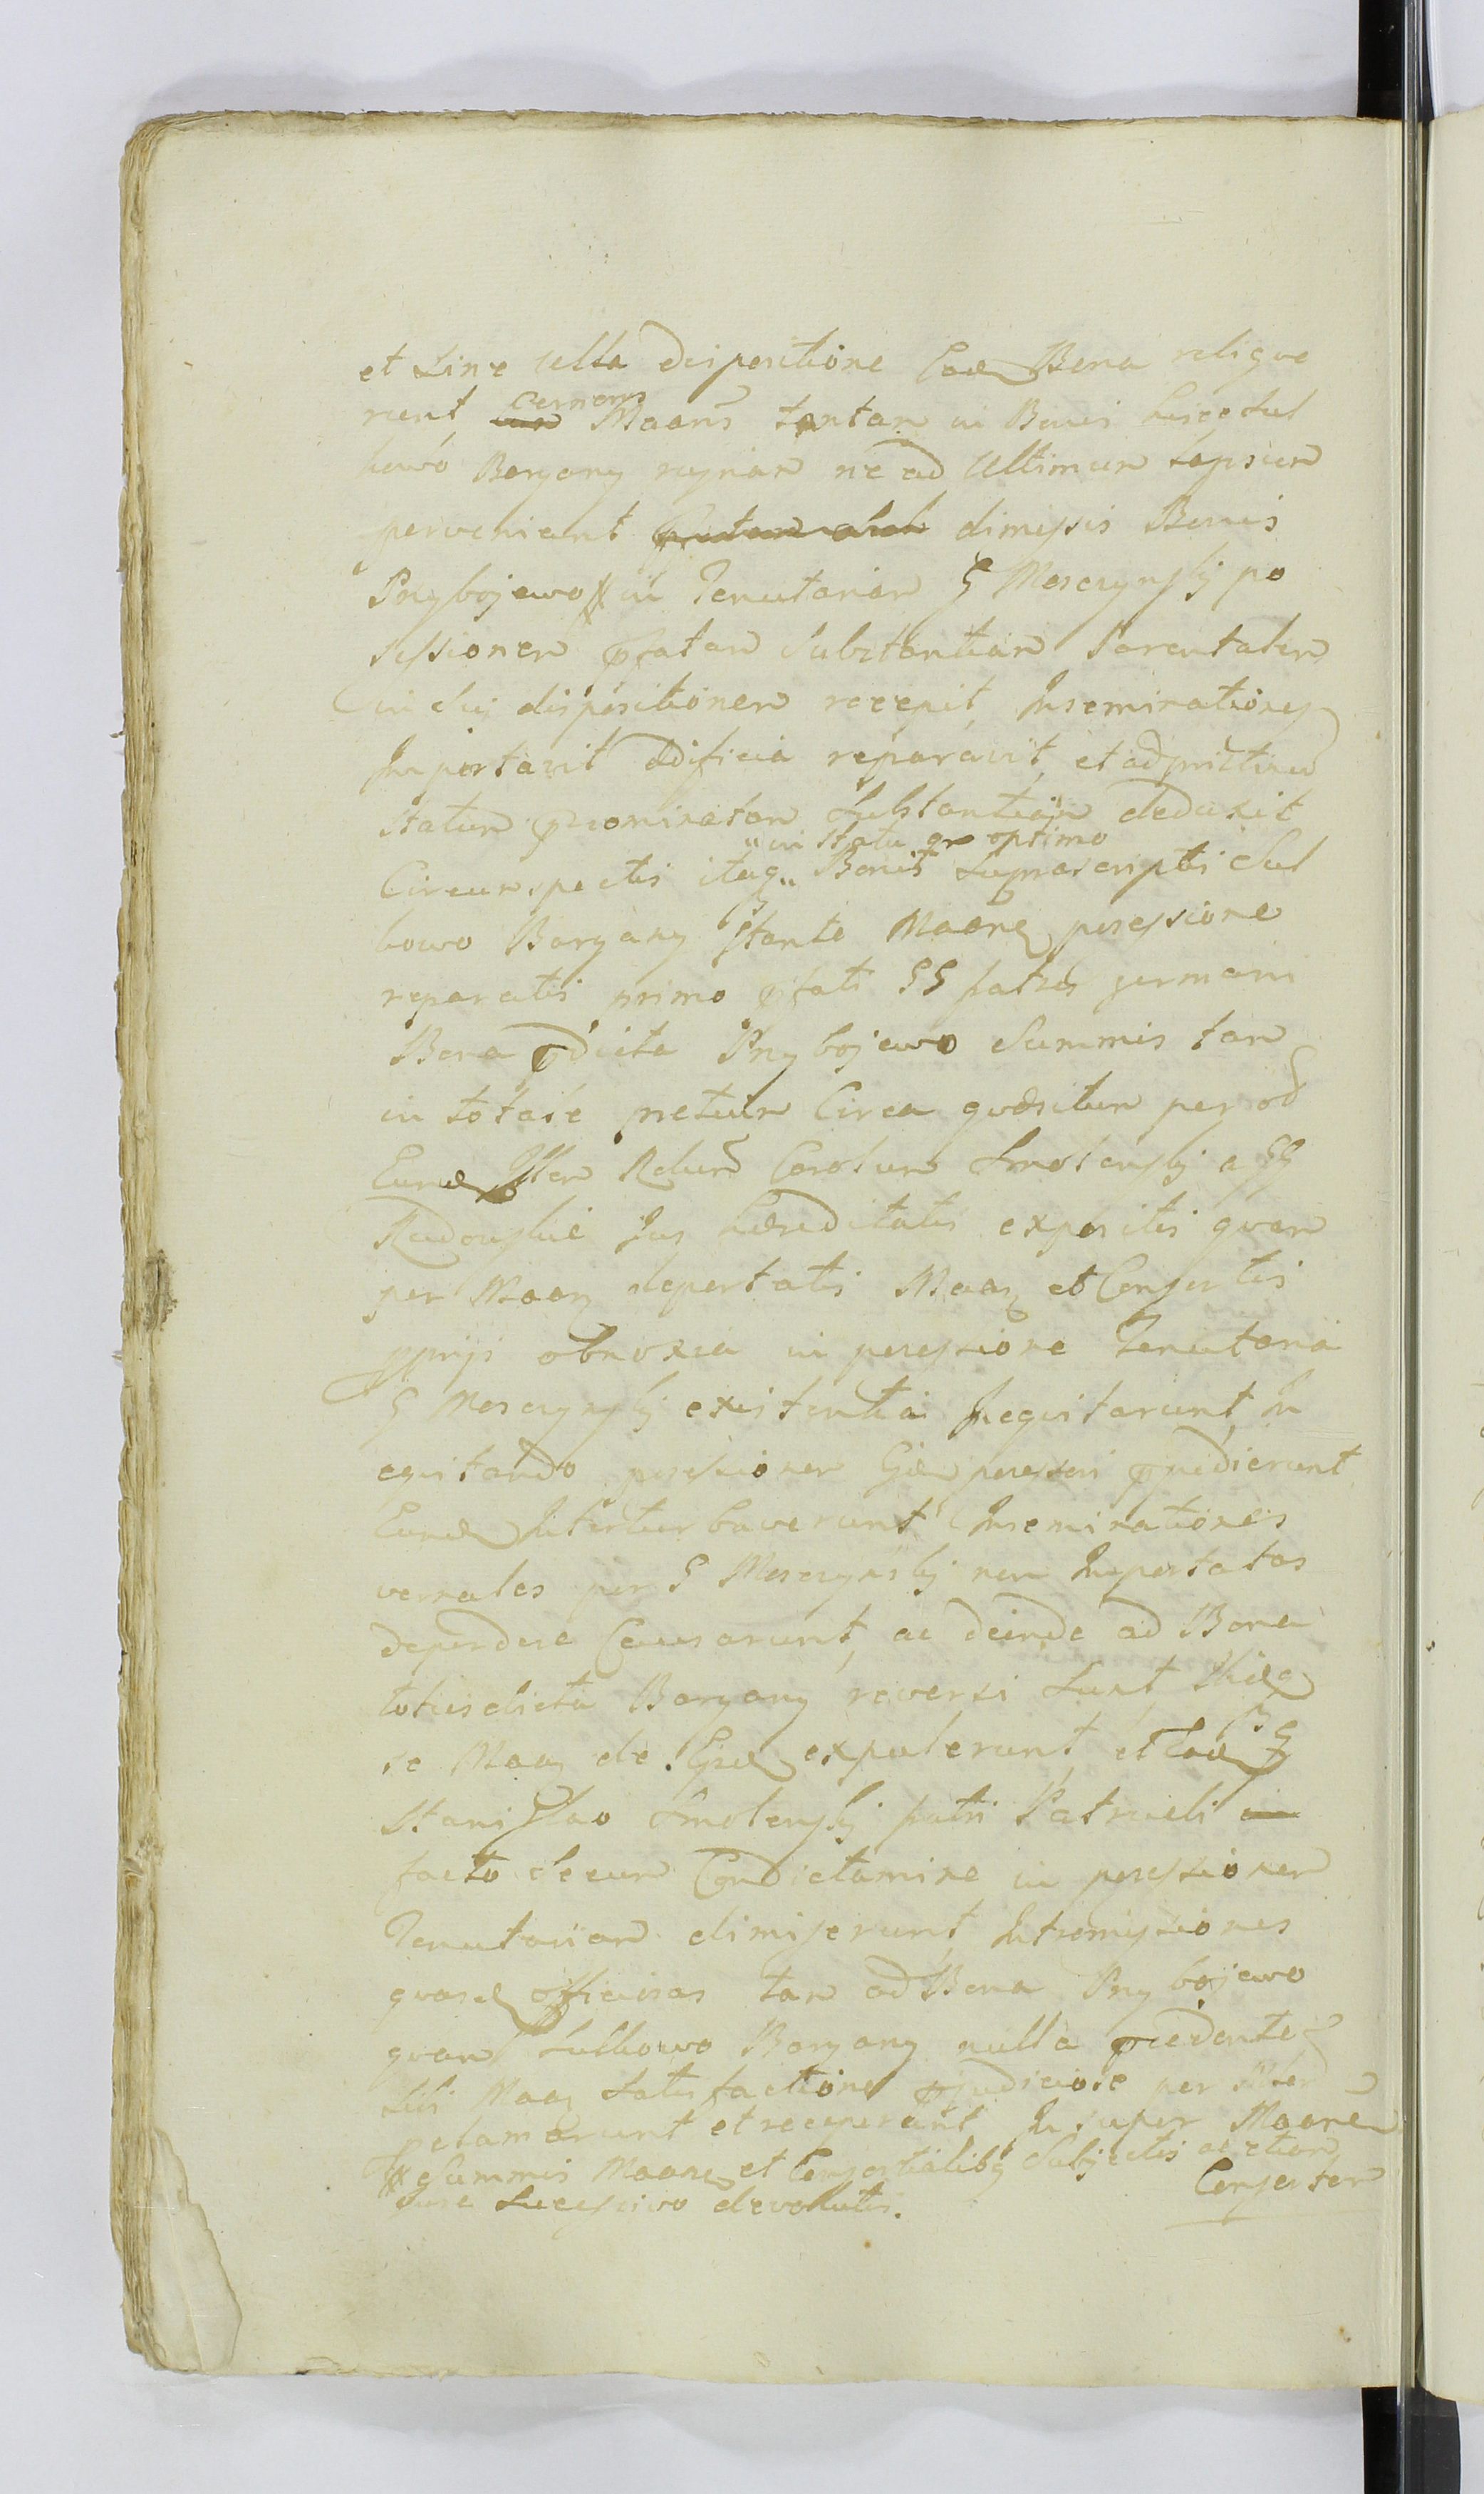 et sine ulla dispositione Eade Bona relique
runt cernens Maans tantam in Bonis hisce Sul
kowo Borzany ruynam ne ad ultimum lapsum
pervenient dimissis Bonis
Przybojewo in Tenutariam G Moszczynskj po
sessionem pfatam Substantiam Parentalem
in sui dispositionem recepit, Inseminationes
Importavit ædificia reparavit, et ad pristinum
statum pnominatam Substantiam deduxit
Circumspectis itaq Bonis in statu optimo Suprascriptis Sul
kowo Borzany stante Maane possessione
reparatis primo pfati GG fratres germani
Bona pdicta Przybojewo Summis tam
in totale pretium Circa quæsitum per od
Eunde Olim Rdum Carolum Smolenskj a GG
Radonskie Jus hæreditatis expositis quam
per Maan deportatis Maan et Consortis
pprijs obnoxia in possessione Tenutaria
G Moszczynskj existentia Inequitarunt, In
equitando possessionem Gid possessori ppedierunt
Eunde Inturbaverunt Inseminationes
vernales per G Moszczynskj non Importatas
deperdere Causarunt, ac deinde ad Bona
totiesdicta Borzany reversi sunt,
se Maan de Gisd expulerunt, et Eade G
Stanislao Smolenskj fratri Patrueli
facto secum Condictamine in possessionem
Tenutariam dimiserunt, Intromissiones
quasd officiosas tam ad Bona Przybojewo
quam Sulkowo Borzany nulla pcedente
sibi Maan Satisfactione pjudiciose per
clamarunt et receperunt In super Maane
Summis Maane et Consortialibq Subjectis ac etiam
Jure Successivo devolutis. Consortem